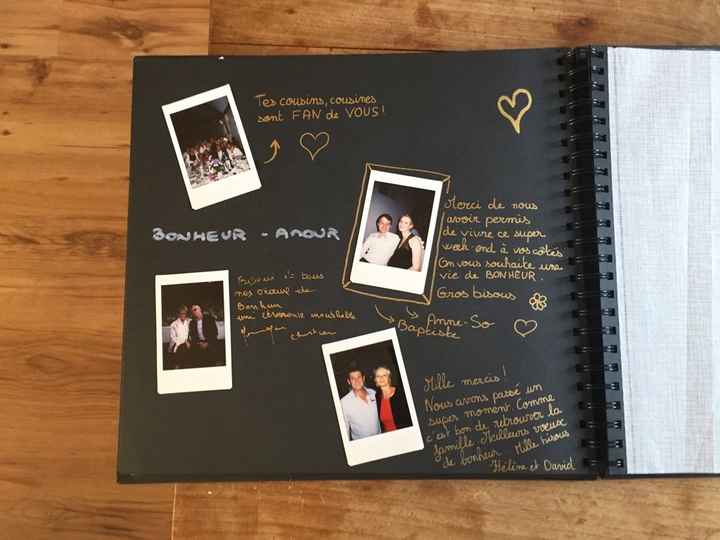 Tes cousins, cousines
sont FAN de VOUS!
BONHEUR - AMOUR
Merci de nous
avoir permis
de vivre ce super
week-end à vos côtés
On vous souhaite une
vie de BONHEUR.
Gros bisous
Anne-So
Baptiste
nos vœux de
Bonheur
une cérémonie inoubliable
Christian
Mille mercis!
Nous avons passé un
super moment. Comme
c'est bon de retrouver la
famille. Meilleurs vœux
de bonheur Mille bisous
Hélène et David